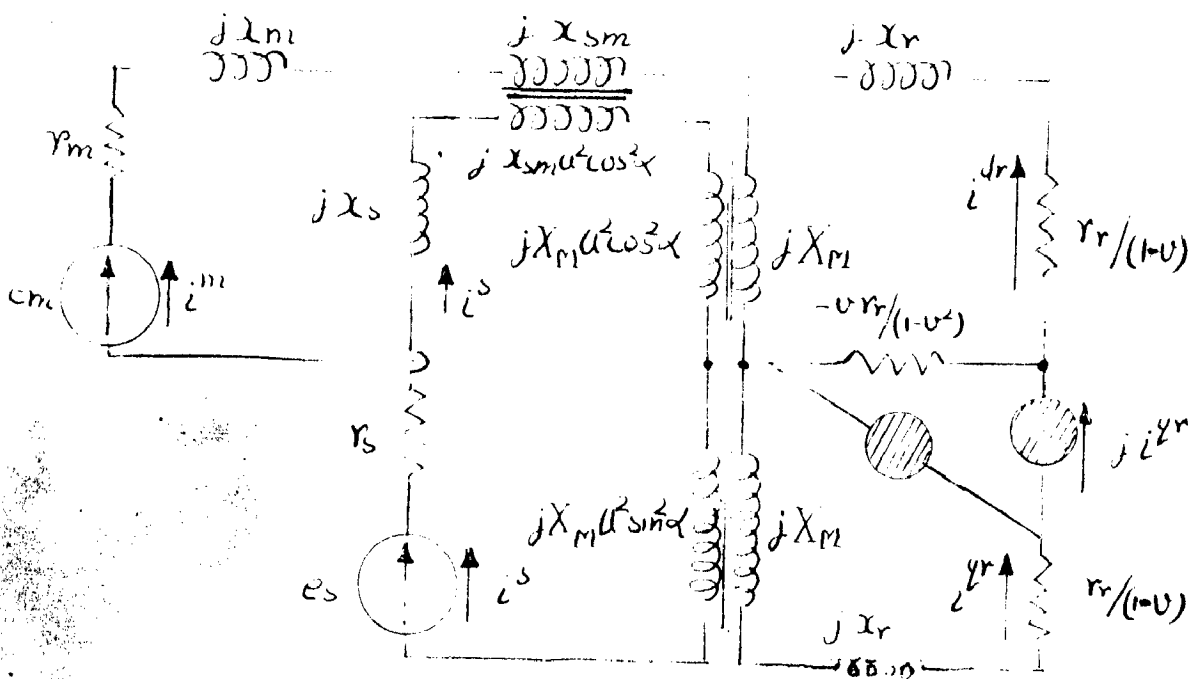 j xm
j xsm
j xr
rm
j xsm a²cos²α
j xs
jXM a²cos²α
jXM
i^dr
rr/(1-υ)
em
i^m
i^s
-υ rr/(1-υ²)
rs
j i^qr
jXM a²sin²α
jXM
es
i^s
i^qr
rr/(1-υ)
j xr